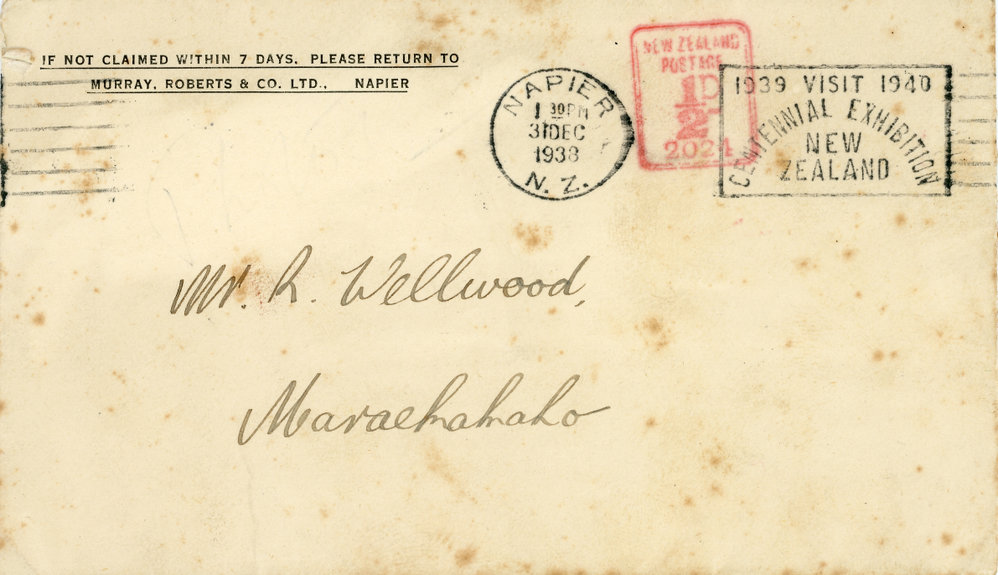 IF NOT CLAIMED WITHIN 7 DAYS, PLEASE RETURN TO
MURRAY, ROBERTS & CO. LTD., NAPIER
NAPIER
1 30PM
31DEC
1938
N. Z.
NEW ZEALAND
POSTAGE
1/2D
2024
1939 VISIT 1940
CENTENNIAL EXHIBITION
NEW
ZEALAND
Mr. R. Wellwood,
Maraekakaho